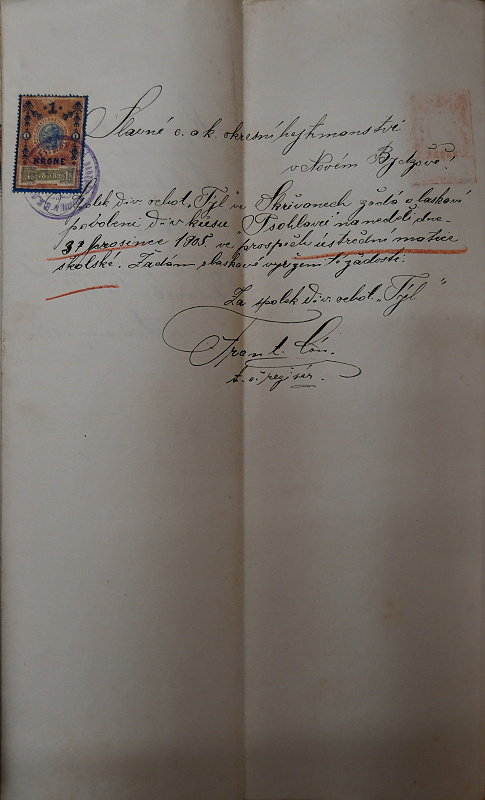 1
KRONE
1898
Slavné c. a k. okresní hejtmanství
v Novém Bydžově!
Spolek div. ochot. "Tyl" ve Skřivanech žádá o laskavé
povolení div. kusu "Psohlavci" na neděli dne
31 prosince 1905, ve prospěch ústřední matice
školské. Žádám o laskavé vyřízení té žádosti.
Za spolek div. ochot. "Tyl"
Frant.
t. č. regisér.